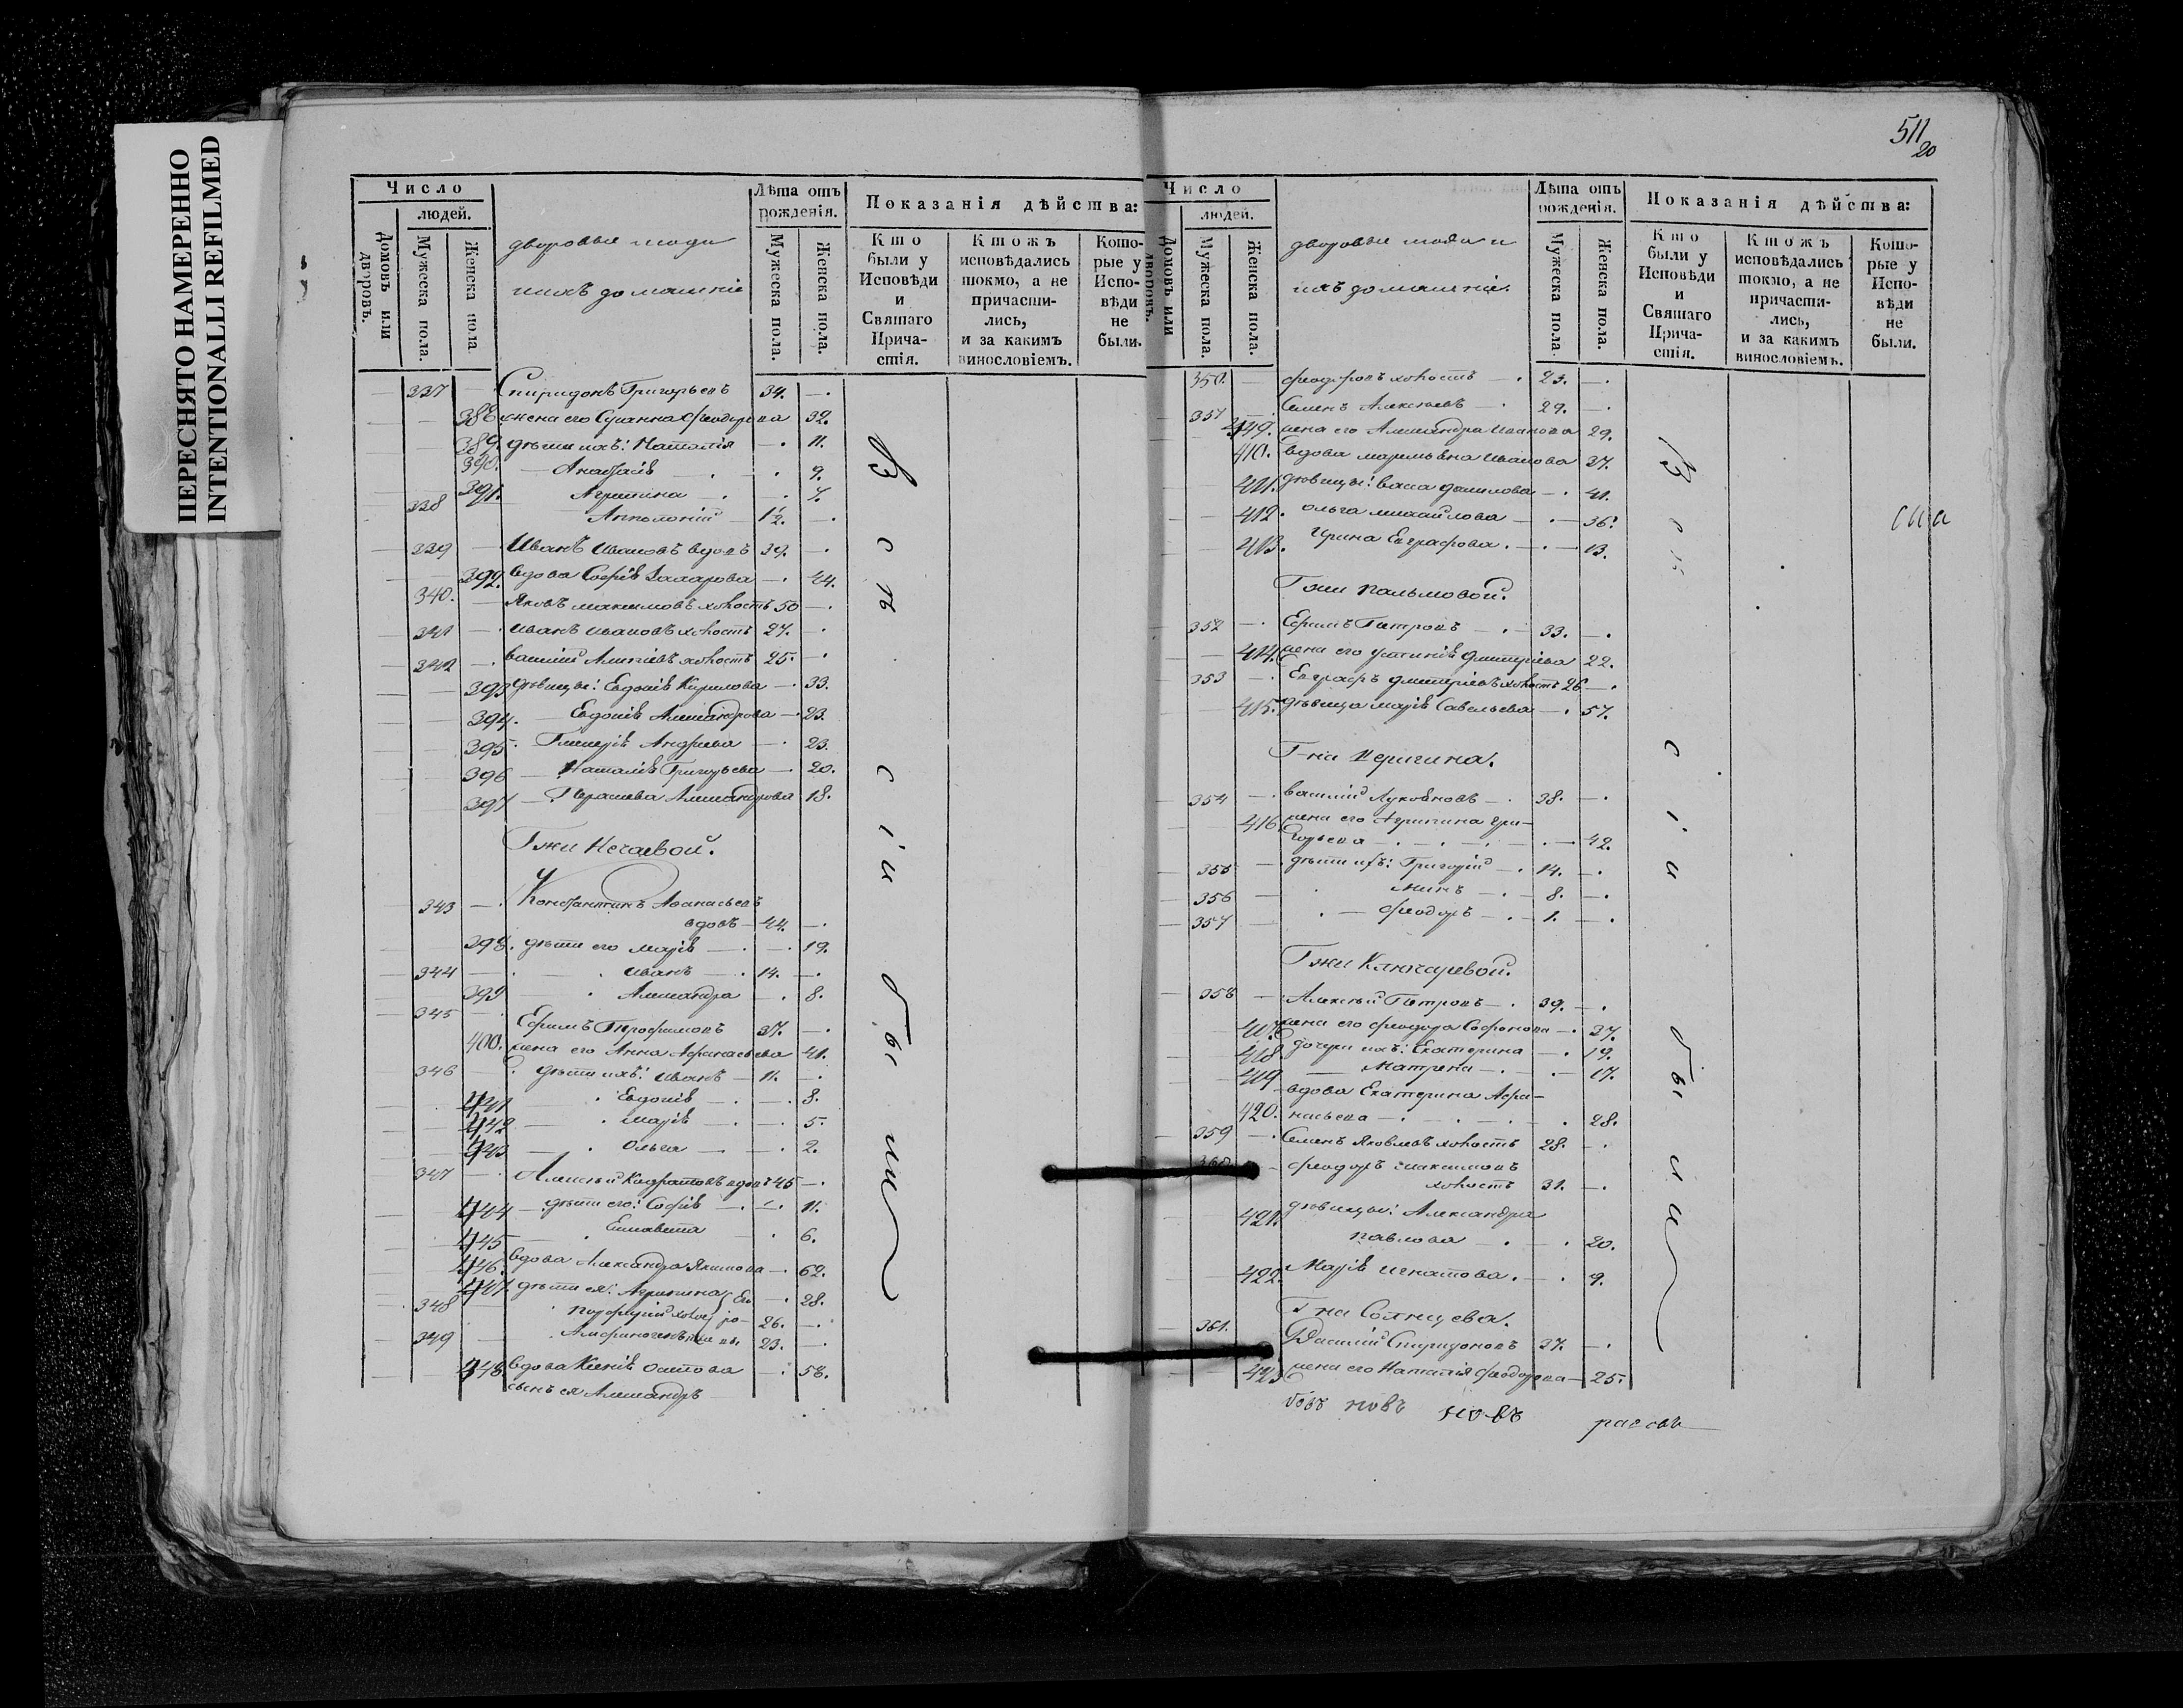 ПЕРЕСНЯТО НАМЕРЕННО
INTENTIONALLI REFILMED
Число
людей.
Домовъ или дворовъ.
Мужеска пола.
Женска пола
дворовые люди
ихъ домашніе
Лѣта отъ рожденія.
Мужеска пола.
Женска пола.
Показанія дѣйства:
Кто были у Исповѣди и Святаго Причастія.
Ктожъ исповѣдались токмо, а не причастились, и за какимъ винословіемъ.
Которые у Исповѣди не были.
337 Спиридонъ Григорьевъ 34.
388 жена его Сусанна Феодорова 32.
389. дѣти ихъ: Наталія 11.
390. Анастасія 9.
391. Агрипина 7.
338 Апполоній 1½.
339 Иванъ Ивановъ вдовъ 39.
392. вдова Софія Захарова 44.
340. Яковъ Максимовъ холостъ 50
341 Иванъ Ивановъ холостъ 27.
342 Василій Алексѣевъ холостъ 25.
393 дѣвицы: Евдокія Кирилова 33.
394. Евдокія Александрова 23.
395. Гликерія Андреева 23.
396 Наталія Григорьева 20.
397 Парасева Александрова 18.
Гжи Нечаевой.
343 Константинъ Афанасьевъ
вдовъ 44.
398. дѣти его Марія 19.
344 Иванъ 14.
399 Александра 8.
345 Ефимъ Трофимовъ 37.
400. жена его Анна Афанасьева 41.
346 дѣти ихъ: Иванъ 11.
441 Евдокія 8.
442 Марія 5.
443 Ольга 2.
347 Алексѣй Кодратовъ вдовъ 45
444 дѣти его: Софія 11.
445 Елисавета 6.
446. вдова Александра Якимова 62.
447. дѣти ея: Агрипина 28.
348 Порфирій 26.
349 23.
448 вдова Ксенія Осипова 58.
сынъ ея Александръ
511
20
Число
людей.
Домовъ или дворовъ.
Мужеска пола.
Женска пола.
дворовые люди и
ихъ домашніе.
Лѣта отъ рожденія.
Мужеска пола.
Женска пола.
Показанія дѣйства:
Кто были у Исповѣди и Святаго Причастія.
Ктожъ исповѣдались токмо, а не причастились, и за какимъ винословіемъ.
Которые у Исповѣди не были.
350. холостъ 23.
351 Семенъ Алексѣевъ 29.
449. жена его Александра Иванова 29.
410. вдова Иванова 37.
411. дѣвицы: Васа Данилова 41.
412. Ольга Михайлова 36.
413. Ирина Евграфова 13.
Гжи Пальмовой.
352 Ефимъ Петровъ 33.
414. жена его Устинія Дмитріева 22.
353 Евграфъ Дмитріевъ холостъ 26
415. дѣвица Марія Савельева 57.
Г-на Черигина.
354 Василій Лукояновъ 38.
416. жена его Агрипина Гри-
горьева 42.
355 дѣти ихъ: Григорій 14.
356 8.
357 Феодоръ 1.
Гжи Ключаревой.
358 Алексѣй Петровъ 39.
417. жена его Феодора Софонова 37.
418 дочери ихъ: Екатерина 19.
419 Матрена 17.
вдова Екатерина Афа-
420. насьева 28.
359 Семенъ Яковлевъ холостъ 28.
360 Феодоръ Максимовъ
холостъ 31.
421. дѣвицы: Александра
Павлова 20.
422. Марія Игнатова 9.
Г-на Солнцева.
361. Василій Спиридоновъ 37.
423 жена его Наталія Феодорова 25.
Всѣ
сіи
были
Всѣ
сіи
были